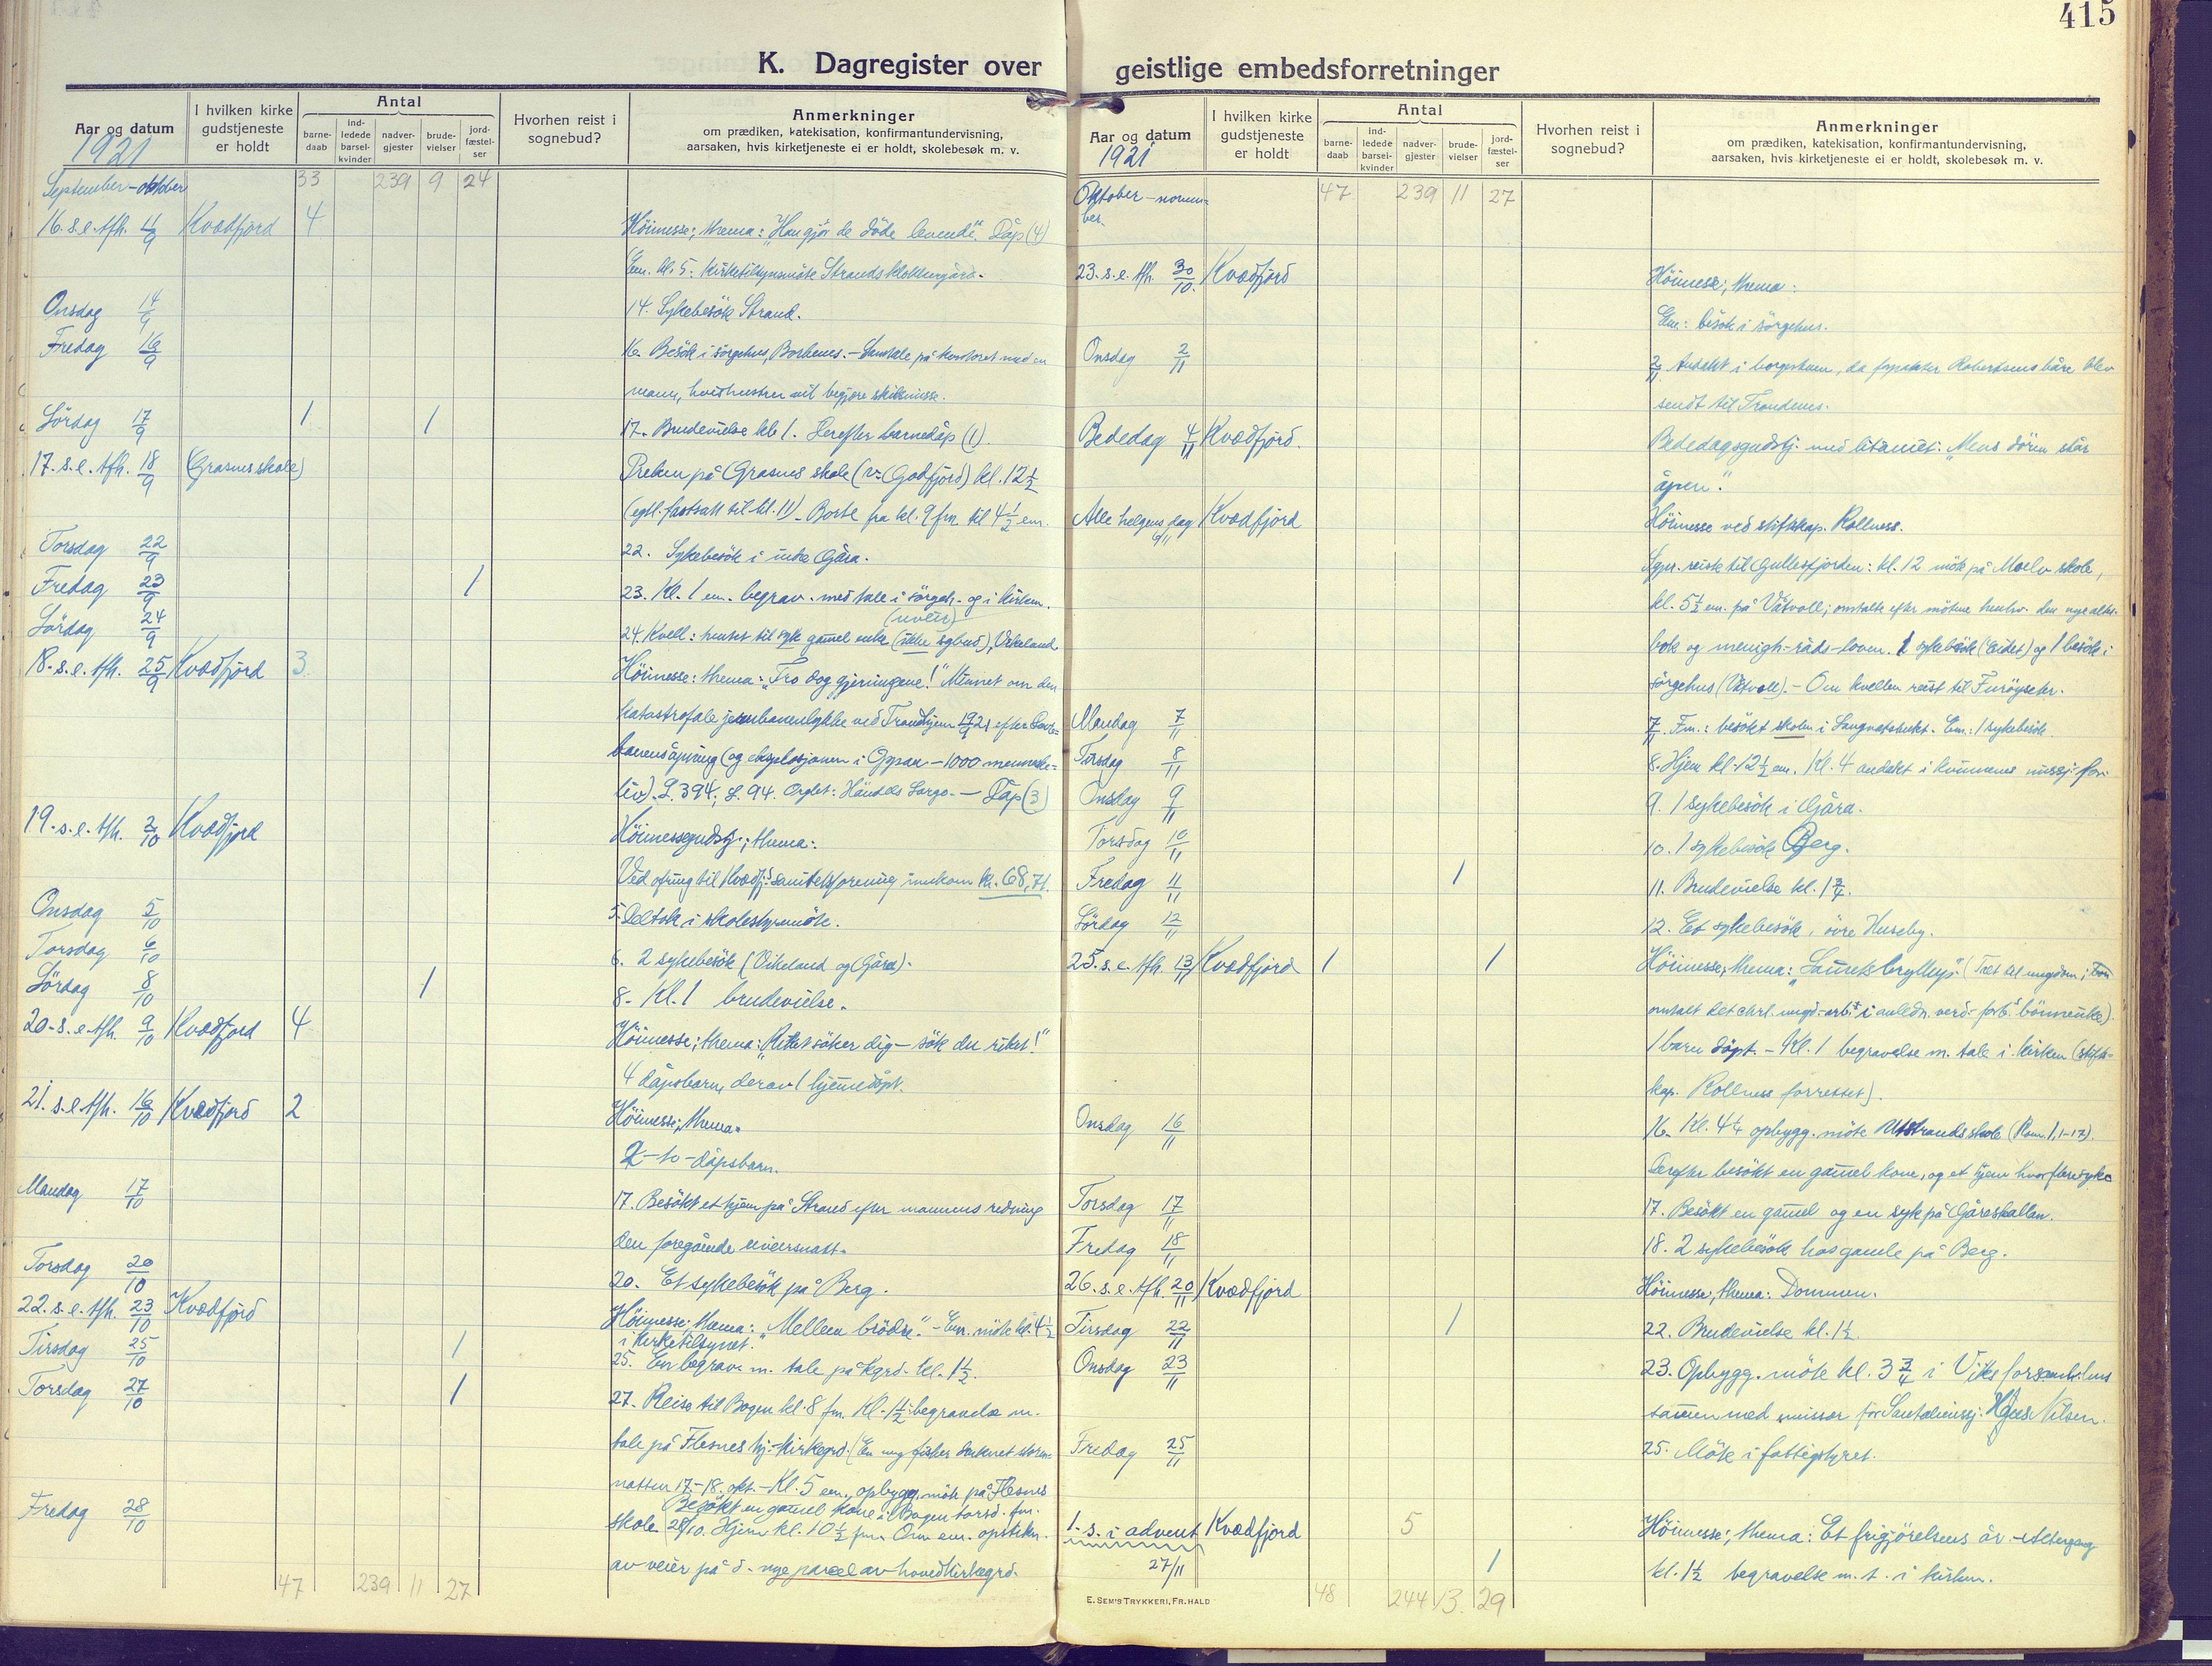 415
K. Dagregister over geistlige embedsforretninger
Aar og datum
1921
I hvilken kirke gudstjeneste er holdt
Antal
barne-daab
ind-ledede barsel-kvinder
nadver-gjester
brude-vielser
jord-fæstel-ser
Hvorhen reist i sognebud?
Anmerkninger
om prædiken, katekisation, konfirmantundervisning,
aarsaken, hvis kirketjeneste ei er holdt, skolebesøk m. v.
September-oktober 33 239 9 24
16. s. e. tfh. 11/9 Kvædfjord 4 Höimesse; thema: "Han gjör de döde levende". Dåp (4)
Em. kl. 5: kirketilsynsmöte Strands klokkergård.
Onsdag 14/9 14. Sykebesök Strand.
Fredag 16/9 16. Besök i sörgehus, Borkenes. - Samtale på kontoret med en
mann, hvis hustru vil begjære skilsmisse.
Lördag 17/9 1 1 17. Brudevielse kl. 1. Derefter barnedåp (1).
17. s. e. tfh. 18/9 (Grasnes skole) Preken på Grasnes skole (v. Godfjord) kl. 12 1/2
(egtl. fastsatt til kl. 11). Borte fra kl. 9 fm. til 4 1/2 em.
Torsdag 22/9 22. Sykebesök i indre Gåra.
Fredag 23/9 1 23. Kl. 1 em. begrav. med tale i sörgeh. og i kirken.
(uveir)
Lördag 24/9 24. Kvell: hentet til syk gamel enke (ikke sognebud), Vikeland.
18. s. e. tfh. 25/9 Kvædfjord 3 Höimesse: thema: "Tro dog gjerningene!" Minnet om den
katastrofale jernbaneulykke ved Trondhjem 19/9 21 efter Dovre-
banens åpning (og eksplosjonen i Oppau - 1000 menneske-
liv). L. 394; S. 94. Orglet: Händels Largo. - Dåp (3)
19. s. e. tfh. 2/10 Kvædfjord Höimessegudstj.; thema:
Ved ofring til Kvædfj.s sanitetsforening innkom kr. 68,71.
Onsdag 5/10 5. Deltok i skolestyremöte.
Torsdag 6/10 6. 2 sykebesök (Vikeland og Gåra).
Lördag 8/10 1 8. Kl. 1 brudevielse.
20. s. e. tfh. 9/10 Kvædfjord 4 Höimesse; thema: "Riket söker dig - sök du riket!"
4 dåpsbarn, derav 1 hjemmedöpt.
21. s. e. tfh. 16/10 Kvædfjord 2 Höimesse; thema:
2 - to - dåpsbarn.
Mandag 17/10 17. Besökt et hjem på Strand efter mannens redning
den foregående uveirsnatt.
Torsdag 20/10 20. Et sykebesök på Berg.
22. s. e. tfh. 23/10 Kvædfjord Höimesse; thema: "Mellem brödre". - Em. möte kl. 4 1/2
i kirketilsynet.
Tirsdag 25/10 1 25. En begrav. m. tale på kgrd. kl. 1 1/2.
Torsdag 27/10 1 27. Reise til Bogen kl. 8 fm. Kl. 1 1/2 begravelse m.
tale på Flesnes hj. kirkegrd. (En ung fisker druknet storm-
natten 17.-18. okt. - Kl. 5 em. opbygg. möte på Flesnes
Besökt en gamel kone i Bogen torsd. fm.
Fredag 28/10 skole. 28/10. Hjem kl. 10 1/2 fm. Om em. opstikn.
av veier på d. nye parcel av hovedkirkegrd.
47 239 11 27
Aar og datum
1921
I hvilken kirke gudstjeneste er holdt
Antal
barne-daab
ind-ledede barsel-kvinder
nadver-gjester
brude-vielser
jord-fæstel-ser
Hvorhen reist i sognebud?
Anmerkninger
om prædiken, katekisation, konfirmantundervisning,
aarsaken, hvis kirketjeneste ei er holdt, skolebesøk m. v.
Oktober - novem- 47 239 11 27
ber.
23. s. e. tfh. 30/10. Kvædfjord Höimesse; thema:
Em.: besök i sörgehus.
Onsdag 2/11 2/11 Andakt i borgstuen, da Robertsens båre blev
sendt til Trondenes.
Bededag 4/11 Kvædfjord. Bededagsgudstj. med litaniet: "Mens dören står
åpen".
Alle helgens dag 6/11 Kvædfjord Höimesse ved stiftskap. Rollness.
Sgpr. reiste til Gullesfjorden: kl. 12 möte på Moelv skole,
kl. 5 1/2 em. på Våtvoll; omtalte efter mötene den nye alter-
bok og menigh.-råds-loven. 1 sykebesök (Eidet) og 1 besök i
sörgehus (Våtvoll). - Om kvellen reist til
Mandag 7/11 7/11. Fm.: besökt skolen i Langvassbukt. Em.: 1 sykebesök.
Tirsdag 8/11 8. Hjem kl. 12 1/2 em. Kl. 4 andakt i kvinnenes missj.-for.
Onsdag 9/11 9. 1 sykebesök i Gåra.
Torsdag 10/11 10. 1 sykebesök Berg.
Fredag 11/11 1 11. Brudevielse kl. 1 3/4.
Lördag 12/11 12. Et sykebesök, övre Huseby.
25. s. e. tfh. 13/11 Kvædfjord 1 1 Höimesse; thema: "Lammets bryllup". (Talt til ungdom;
omtalt det chrl. ungd.-arb. i anledn. verd.-forb.s bönneuke).
1 barn döpt. - Kl. 1 begravelse m. tale i kirken (stifts-
kap. Rollness forrettet).
Onsdag 16/11 16. Kl. 4 1/4 opbygg. möte Utstrands skole (Rom. 1, 1-17).
Derefter besökt en gamel kone, og et hjem hvor flere syke
Torsdag 17/11 17. Besökt en gamel og en syk på Gåreskallan.
Fredag 18/11 18. 2 sykebesök hos gamle på Berg.
26. s. e. tfh. 20/11 Kvædfjord Höimesse, thema: Dommen.
Tirsdag 22/11 1 22. Brudevielse kl. 1 1/2.
Onsdag 23/11 23. Opbygg. möte kl. 3 3/4 i Viks forsaml.hus
sammen med emissær för Santalmissj. Nilsen.
Fredag 25/11 25. Möte i fattigstyret.
1. s. i advent Kvædfjord 5 Höimesse; thema: Et frigjörelsens år. - Altergang
27/11 1 kl. 1 1/2 begravelse m. t. i kirken.
48 244 13. 29
E. SEM'S TRYKKERI, FR.HALD